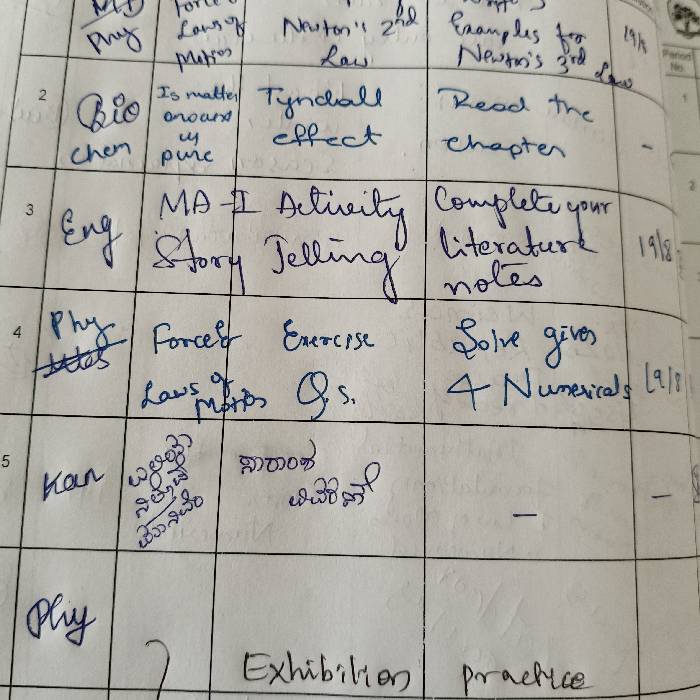 Force &
Phy Laws of Newton's 2nd Examples for 19/8
Motion Law Newton's 3rd Law
Period
No
1
2 Bio Is matter Tyndall Read the
Chem around us pure effect chapter -
2
3 Eng MA-I Activity Complete your
Story Telling literature 19/8
notes
4 Phy Force & Exercise Solve given
Laws of Motion Q.s. 4 Numericals 19/8
5 Kan ಸಾರಾಂಶ
ವಿವರಣೆ - -
Phy
Exhibition practice